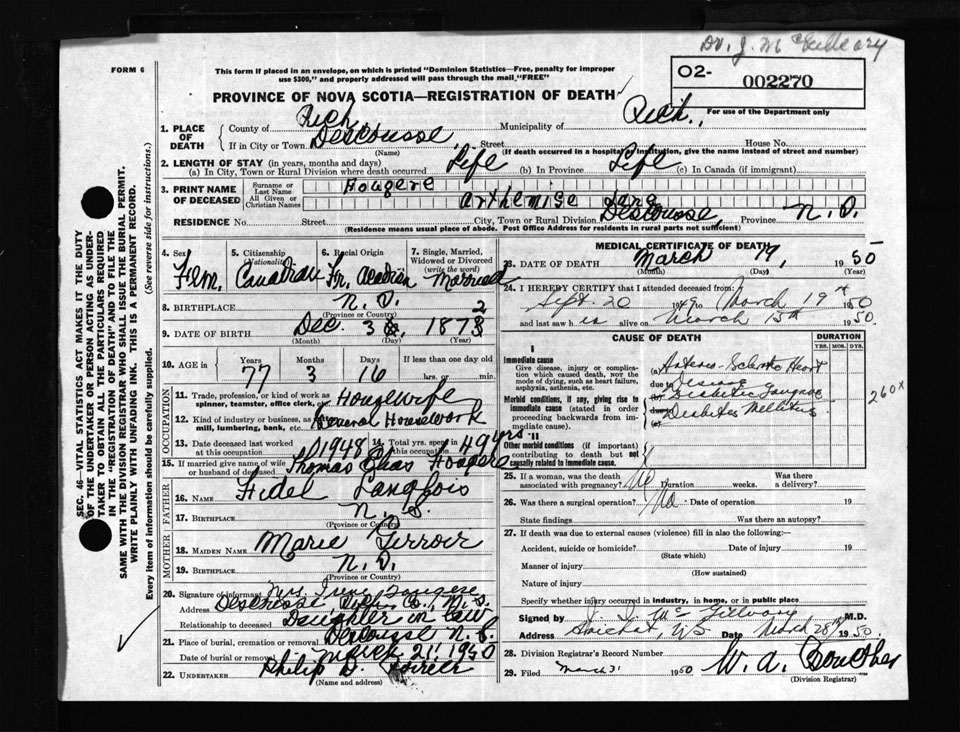 Dr. J. McGillvary
FORM 6
This form if placed in an envelope, on which is printed "Dominion Statistics—Free, penalty for improper
use $300," and properly addressed will pass through the mail "FREE"
O2- 002270
PROVINCE OF NOVA SCOTIA—REGISTRATION OF DEATH
For use of the Department only
1. PLACE OF DEATH
County of Rich. Municipality of Rich.,
If in City or Town Descousse, Street House No.
(Name) (If death occurred in a hospital or institution, give the name instead of street and number)
2. LENGTH OF STAY (in years, months and days)
(a) In City, Town or Rural Division where death occurred Life (b) In Province Life (c) In Canada (if immigrant)
3. PRINT NAME OF DECEASED
Surname or Last Name Hougere
All Given or Christian Names Arthemise
RESIDENCE No. Street City, Town or Rural Division Descousse, Province N.S.
(Residence means usual place of abode. Post Office Address for residents in rural parts not sufficient)
4. Sex 5. Citizenship (Nationality) 6. Racial Origin 7. Single, Married, Widowed or Divorced (write the word)
Fem. Canadian Fr. Acadian Married
8. BIRTHPLACE N.S.
(Province or Country)
9. DATE OF BIRTH Dec. 3 1872
(Month) (Day) (Year)
10. AGE Years Months Days If less than one day old
77 3 16 hrs. or min.
OCCUPATION
11. Trade, profession, or kind of work as spinner, teamster, office clerk, etc. Housewife
12. Kind of industry or business, as mill, lumbering, bank, etc. General Housework
13. Date deceased last worked at this occupation 1948 14. Total yrs. spent in this occupation 49 yrs
15. If married give name of wife or husband of deceased Thomas Elias Hougere
FATHER
16. NAME Fidel Langlois
17. BIRTHPLACE N.S.
(Province or Country)
MOTHER
18. MAIDEN NAME Marie Terroir
19. BIRTHPLACE N.S.
(Province or Country)
20. Signature of informant Mrs.
Address Descousse, Rich Co., N.S.
Relationship to deceased Daughter in law
21. Place of burial, cremation or removal Descousse N.S.
Date of burial or removal March 21, 1950
22. UNDERTAKER Philip D.
(Name and address)
MEDICAL CERTIFICATE OF DEATH
23. DATE OF DEATH March 19, 1950
(Month) (Day) (Year)
24. I HEREBY CERTIFY that I attended deceased from:
Sept. 20 1949 to March 19th 1950
and last saw her alive on March 15th 1950.
CAUSE OF DEATH DURATION
YRS. MOS. DYS.
I
Immediate cause
Give disease, injury or complication which caused death, not the mode of dying, such as heart failure, asphyxia, asthenia, etc.
(a) Arterio-Sclerotic Heart
due to Disease
Morbid conditions, if any, giving rise to immediate cause (stated in order proceeding backwards from immediate cause).
(b) Diabetic Gangrene
due to
(c) Diabetes Mellitus
260X
II
Other morbid conditions (if important) contributing to death but not causally related to immediate cause.
25. If a woman, was the death associated with pregnancy? No Duration weeks. Was there a delivery?
26. Was there a surgical operation? No Date of operation 19
State findings Was there an autopsy?
27. If death was due to external causes (violence) fill in also the following:
Accident, suicide or homicide? Date of injury 19
(State which)
Manner of injury
(How sustained)
Nature of injury
Specify whether injury occurred in industry, in home, or in public place
Signed by J. J. McGillvary M.D.
Address Arichat, NS Date March 28th 1950.
28. Division Registrar's Record Number
29. Filed March 31 1950 W. A. Boucher
(Division Registrar)
SEC. 46—VITAL STATISTICS ACT MAKES IT THE DUTY
OF THE UNDERTAKER OR PERSON ACTING AS UNDERTAKER TO OBTAIN ALL THE PARTICULARS REQUIRED
IN THE "REGISTRATION OF DEATH" AND TO FILE THE
SAME WITH THE DIVISION REGISTRAR WHO SHALL ISSUE THE BURIAL PERMIT.
WRITE PLAINLY WITH UNFADING INK. THIS IS A PERMANENT RECORD.
Every item of information should be carefully supplied. (See reverse side for instructions.)